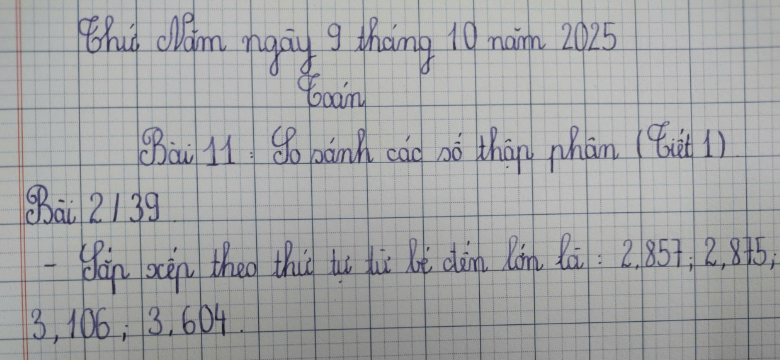 Thứ Năm ngày 9 tháng 10 năm 2025
Toán
Bài 11: So sánh các số thập phân (Tiết 1)
Bài 2/39
- Sắp xếp theo thứ tự từ bé đến lớn là: 2,857; 2,875;
3,106; 3,604.